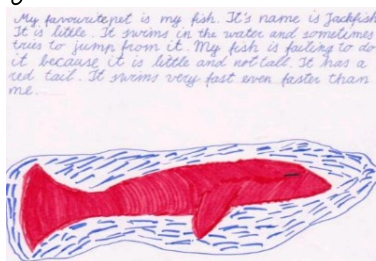 My favourite pet is my fish. It's name is Jackfish.
It is little. It swims in the water and sometimes
tries to jump from it. My fish is failing to do
it because it is little and not tall. It has a
red tail. It swims very fast even faster than
me.